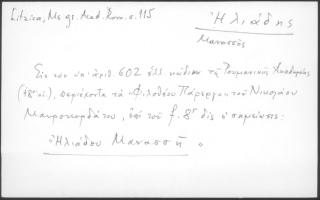 Litzica, Ms gr. Acad. Rom. σ. 115
Ἠλιάδης
Μανασσῆς
Εἰς τὸν ὑπ' ἀριθ. 602 ἑλλ. κώδικα τῆς Ρουμανικῆς Ἀκαδημίας
περιέχοντα τὰ «Φιλοθέου Πάρεργα» τοῦ Νικολάου
Μαυροκορδάτου, ἐπὶ τοῦ f. 8 δὶς ἡ σημείωσις:
Ἠλιάδου Μανασσῆ.